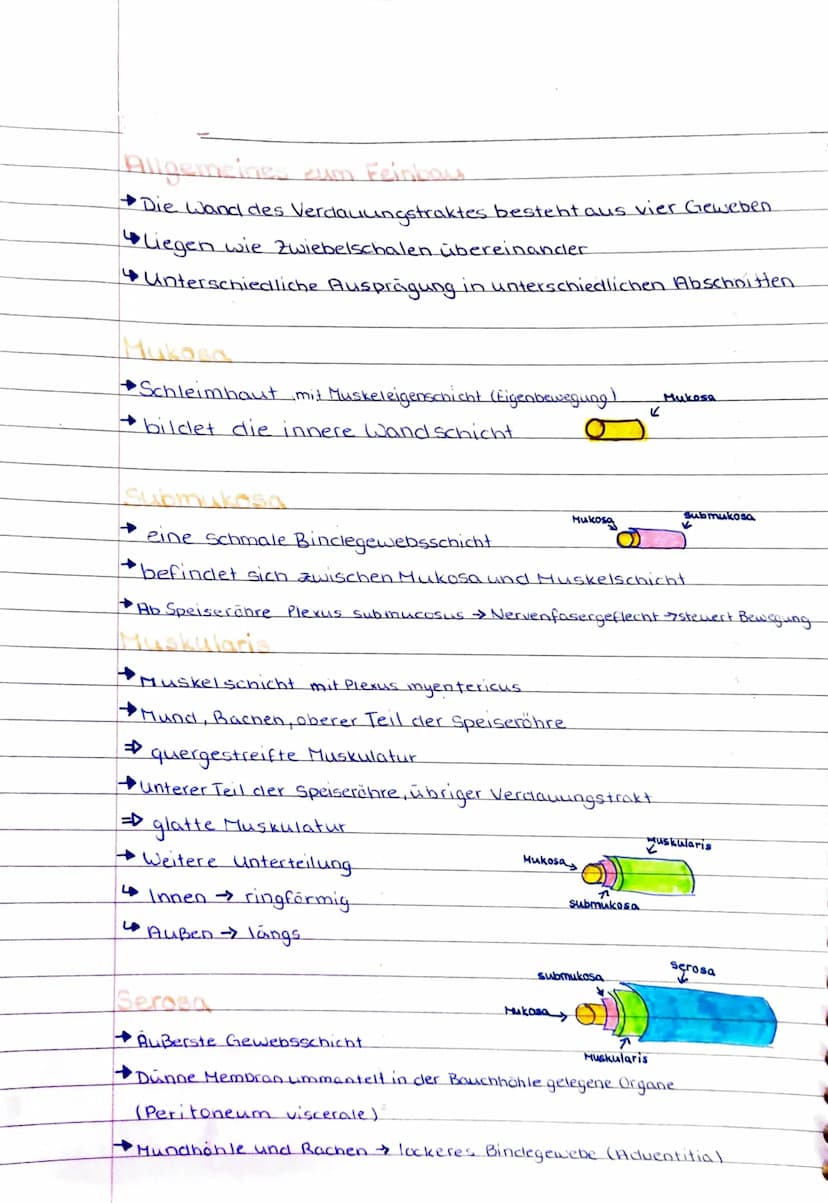 Allgemeines zum Feinbau
→ Die Wand des Verdauungstraktes besteht aus vier Geweben
↳ Liegen wie Zwiebelschalen übereinander
↳ Unterschiedliche Ausprägung in unterschiedlichen Abschnitten
Mukosa
→ Schleimhaut mit Muskeleigenschicht (Eigenbewegung)
Mukosa
→ bildet die innere Wandschicht
Submukosa
Mukosa
Submukosa
→ eine schmale Bindegewebsschicht
→ befindet sich zwischen Mukosa und Muskelschicht
→ Ab Speiseröhre Plexus submucosus → Nervenfasergeflecht → steuert Bewegung
Muskularis
→ Muskelschicht mit Plexus myentericus
→ Mund, Rachen, oberer Teil der Speiseröhre
⇒ quergestreifte Muskulatur
→ unterer Teil der Speiseröhre, übriger Verdauungstrakt
⇒ glatte Muskulatur
→ Weitere Unterteilung
↳ Innen → ringförmig
↳ Außen → längs
Muskularis
Mukosa
Submukosa
Serosa
Submukosa
Serosa
Mukosa
Muskularis
→ Äußerste Gewebsschicht
→ Dünne Membran ummantelt in der Bauchhöhle gelegene Organe
(Peritoneum viscerale)
→ Mundhöhle und Rachen → lockeres Bindegewebe (Adventitia)